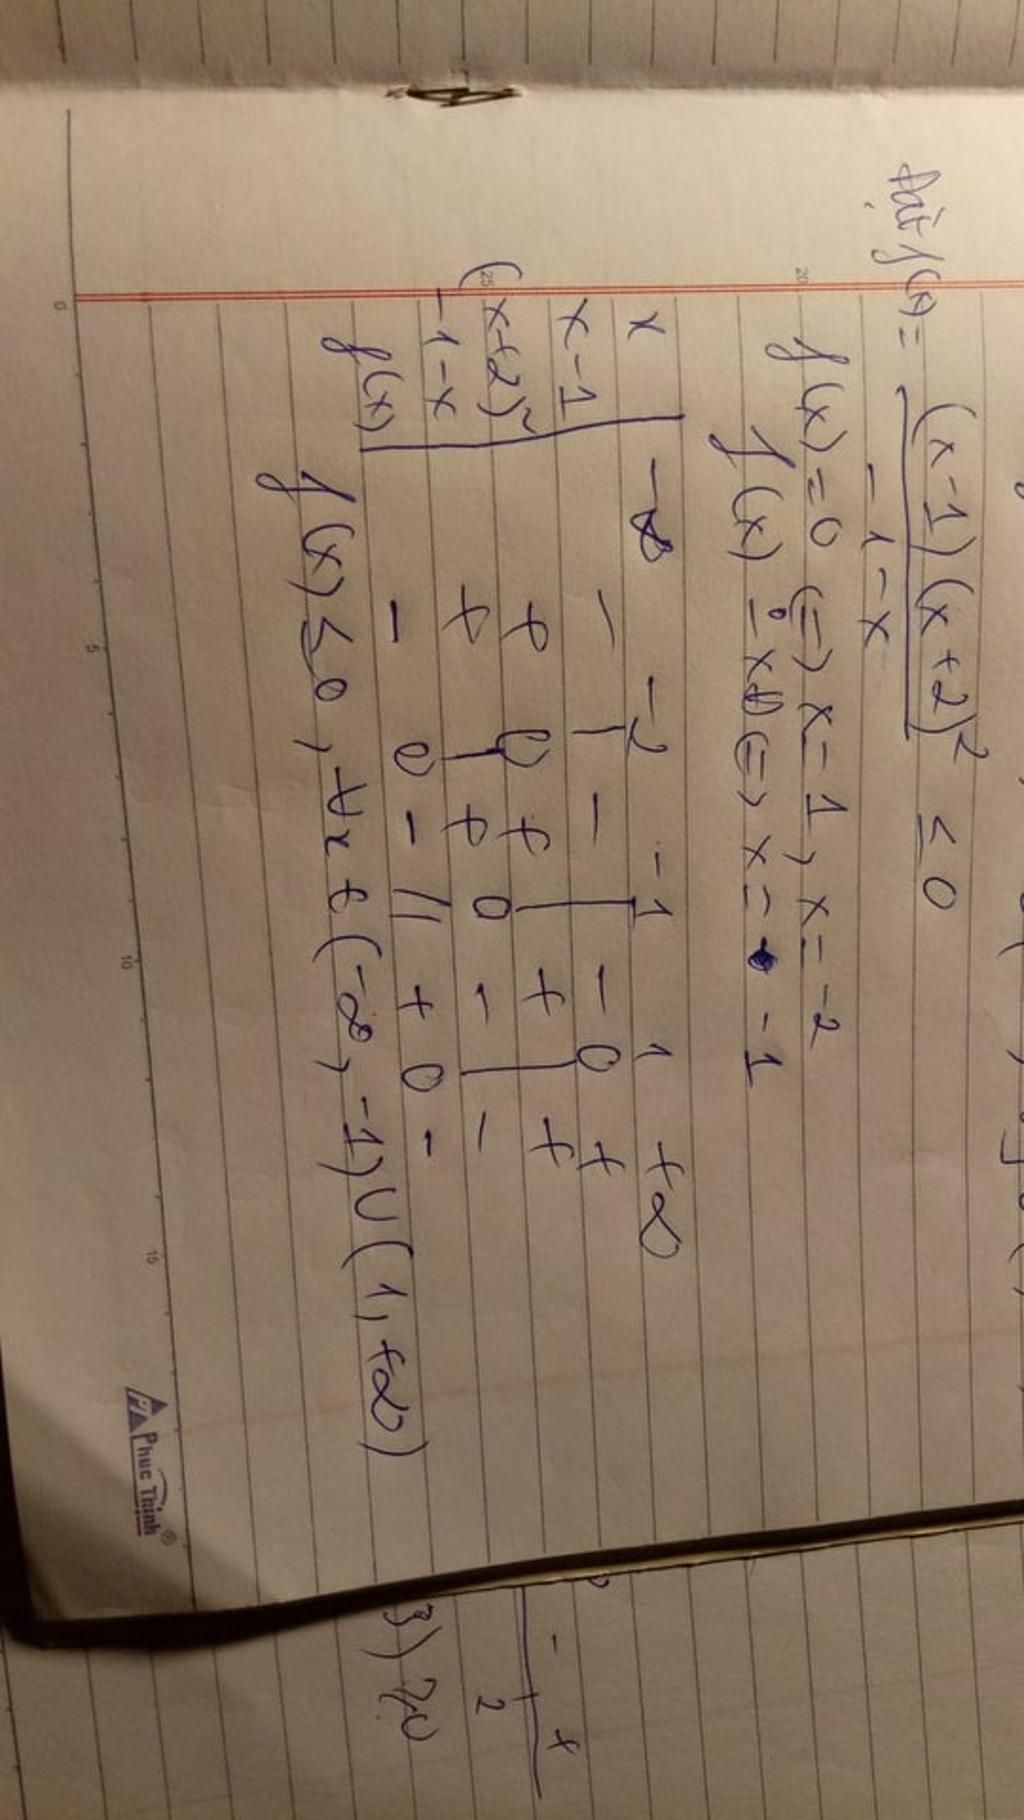 Đặt f(x) = (x-1)(x+2)² / -1-x ≤ 0
f(x) = 0 (=) x = 1, x = -2
f(x) (=) x = -1
x -∞ -2 -1 1 +∞
x-1 - | - | - 0 +
(x+2)² + 0 + | + | +
-1-x + | + 0 - | -
f(x) - 0 - || + 0 -
f(x) ≤ 0, ∀x ∈ (-∞, -1) U (1, +∞)
- +
2
3) ≥0
0
5
10
15
20
25
Phuc Thinh®